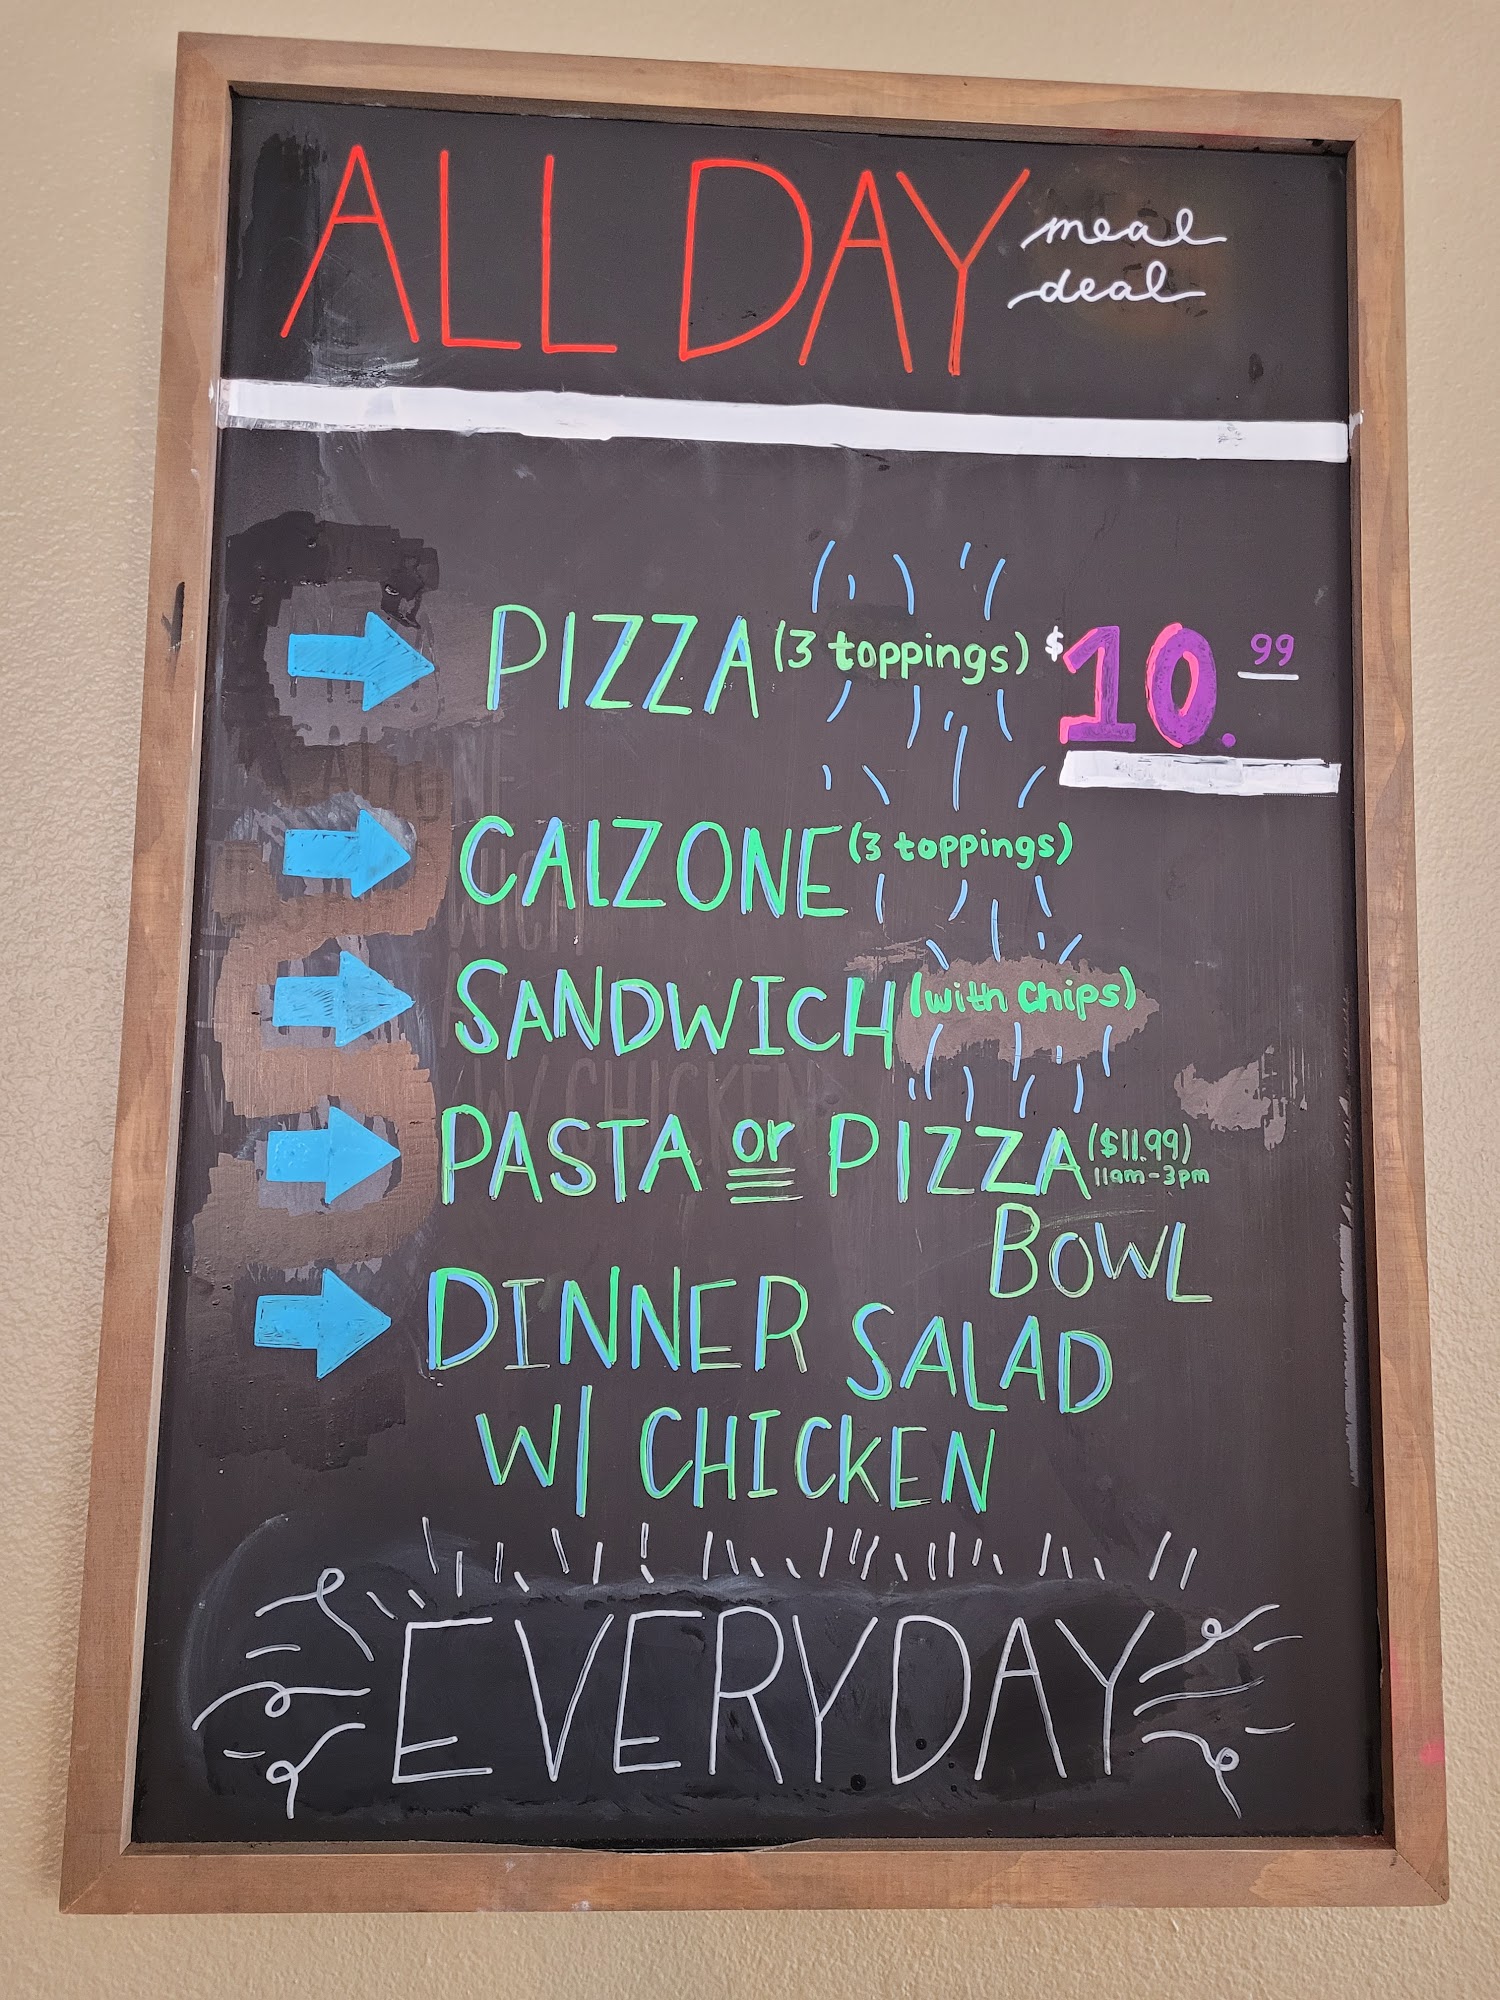 ALL DAY meal
deal
PIZZA (3 toppings) $10.99
CALZONE (3 toppings)
SANDWICH (with chips)
PASTA or PIZZA ($11.99)
11am-3pm
BOWL
DINNER SALAD
W/ CHICKEN
EVERYDAY